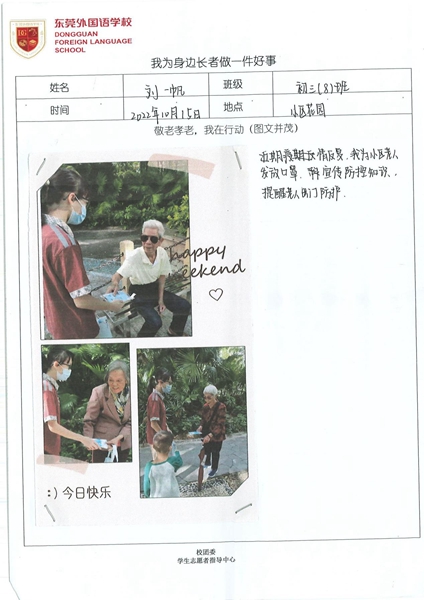 东莞外国语学校
DONGGUAN
FOREIGN LANGUAGE
SCHOOL
我为身边长者做一件好事
姓名 刘一帆 班级 初三(8)班
时间 2022年10月15日 地点 小区花园
敬老孝老，我在行动（图文并茂）
近期疫情反复，我为小区老人
发放口罩，宣传防控知识，
提醒老人出门防护。
happy
weekend
:) 今日快乐
校团委
学生志愿者指导中心